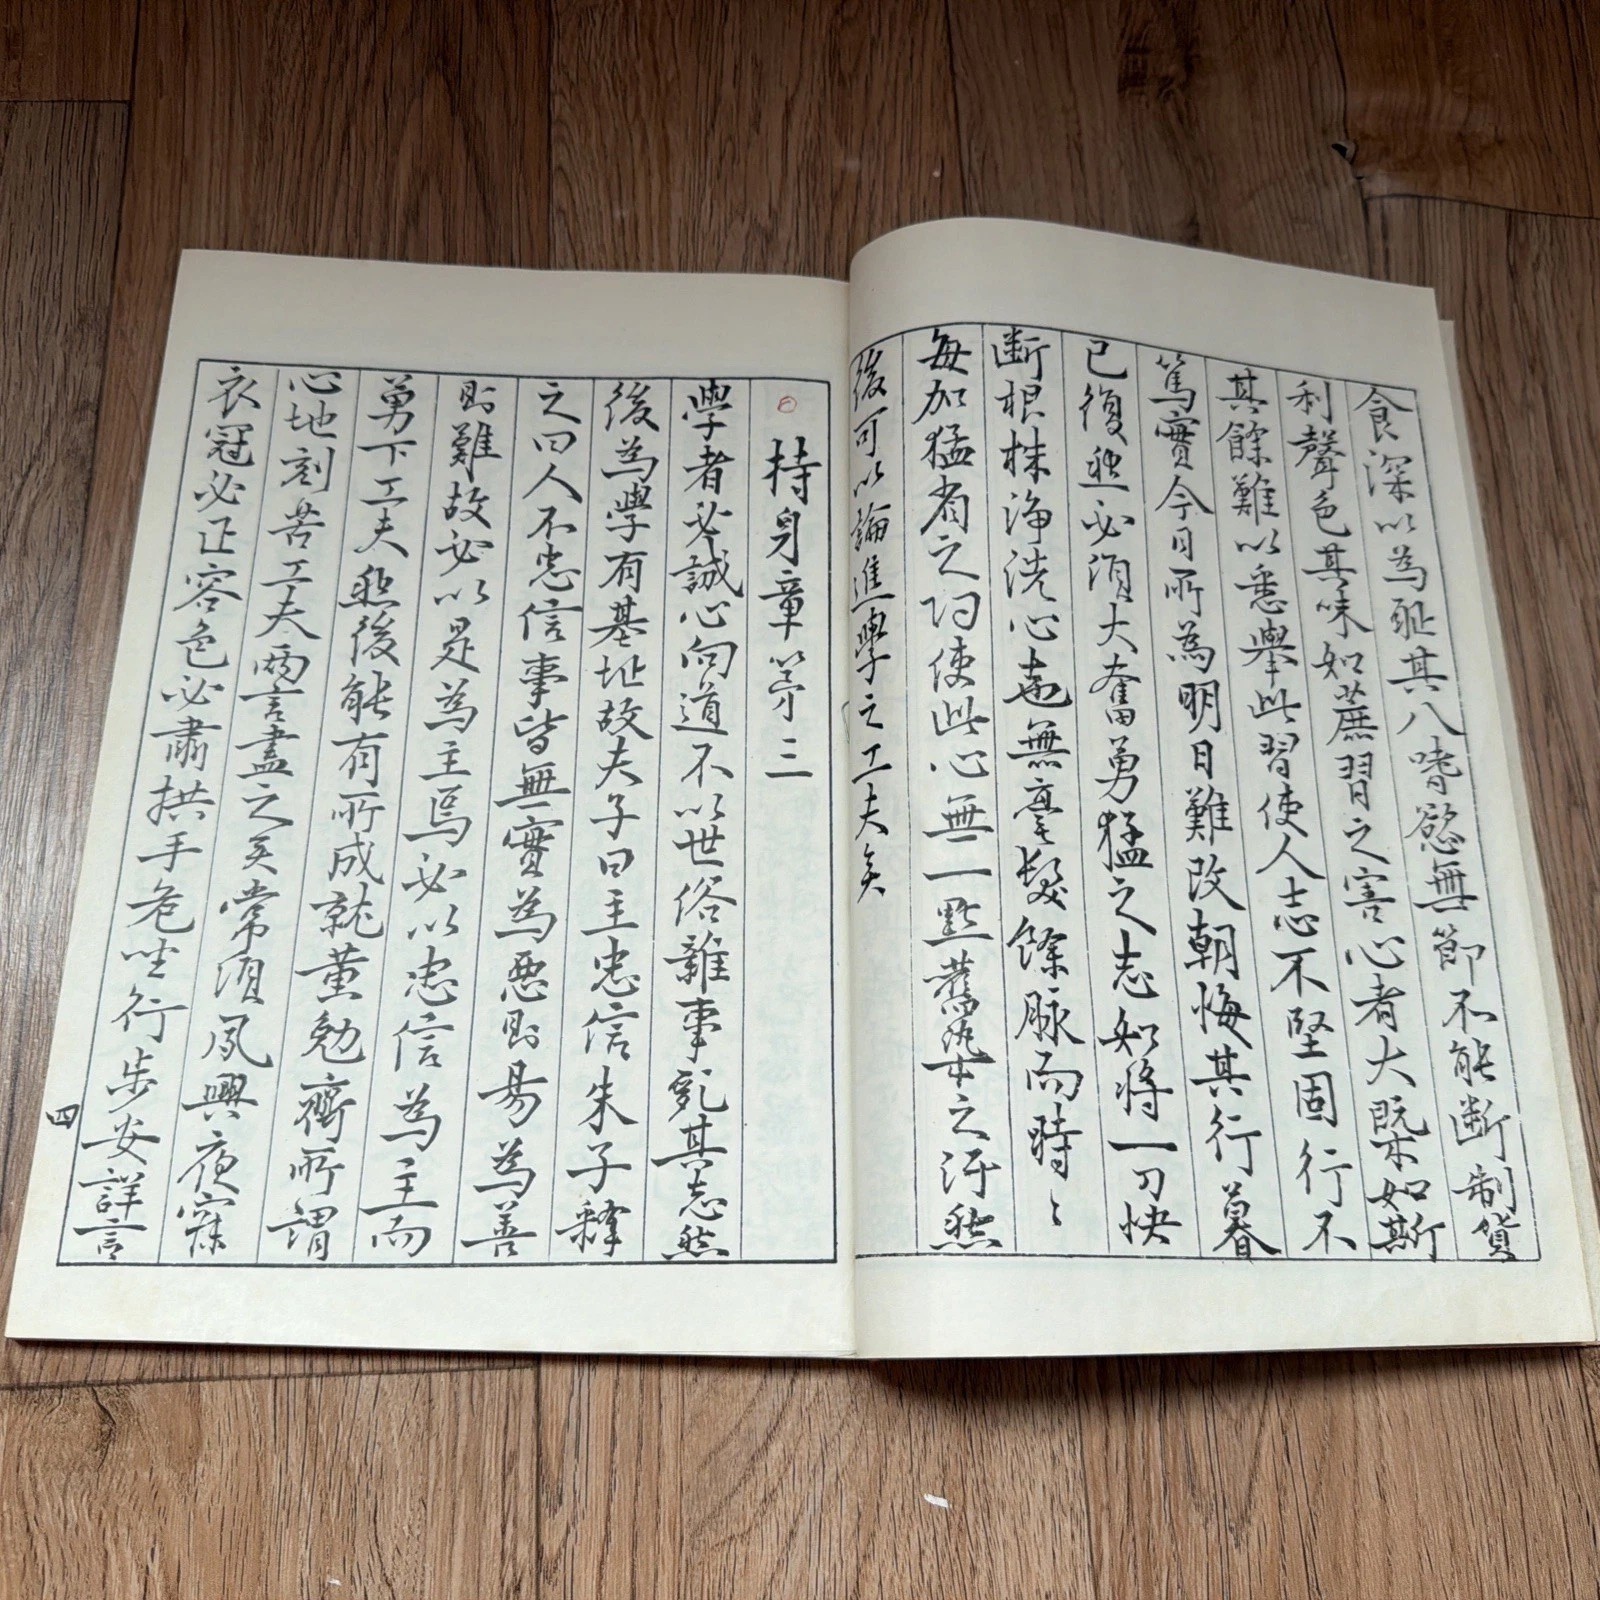 食深以為耻其八嗜慾無節不能斷制貨
利聲色其味如蔗習之害心者大槩如斯
其餘難以悉擧此習使人志不堅固行不
篤實今日所為明日難改朝悔其行暮
已復然必須大奮勇猛之志如將一刀快
斷根株淨洗心地無毫髮餘脉而時〻
每加猛省之功使此心無一點舊染之汙然
後可以論進學之工夫矣
持身章第三
學者必誠心向道不以世俗雜事亂其志然
後為學有基址故夫子曰主忠信朱子釋
之曰人不忠信事皆無實為惡則易為善
則難故必以是為主焉必以忠信為主而
勇下工夫然後能有所成就黃勉齋所謂
心地刻苦工夫兩言盡之矣常須夙興夜寐
衣冠必正容色必肅拱手危坐行步安詳言
四